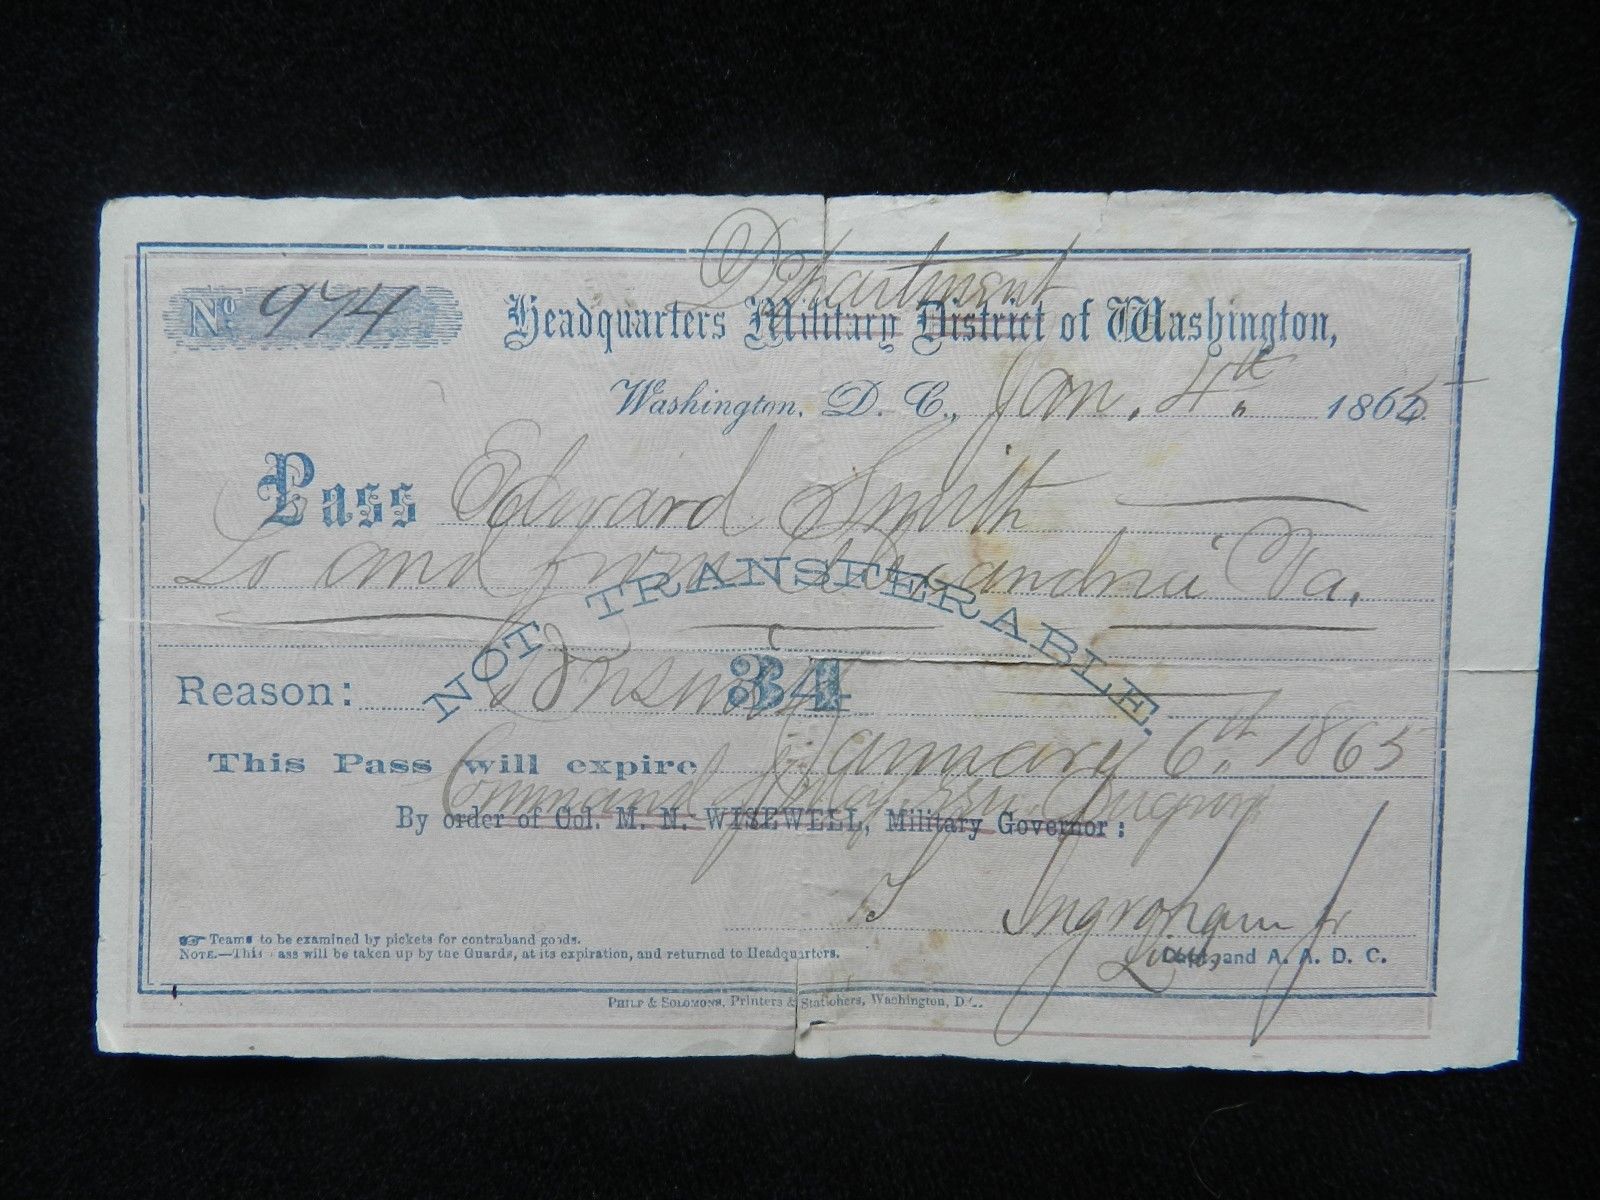 Department
No. 974 Headquarters Military District of Washington,
Washington, D. C., Jan. 4th 1865
Pass Edward Smith
to and from Alexandria Va.
NOT TRANSFERABLE.
34
Reason: Business
This Pass will expire January 6th, 1865
Command of Maj. Gen. Augur
By order of Col. M. N. WISEWELL, Military Governor:
Ingraham Jr
☞ Teams to be examined by pickets for contraband goods.
NOTE.—This Pass will be taken up by the Guards, at its expiration, and returned to Headquarters.
Lieut. and A. A. D. C.
PHILP & SOLOMONS, Printers & Stationers, Washington, D.C.